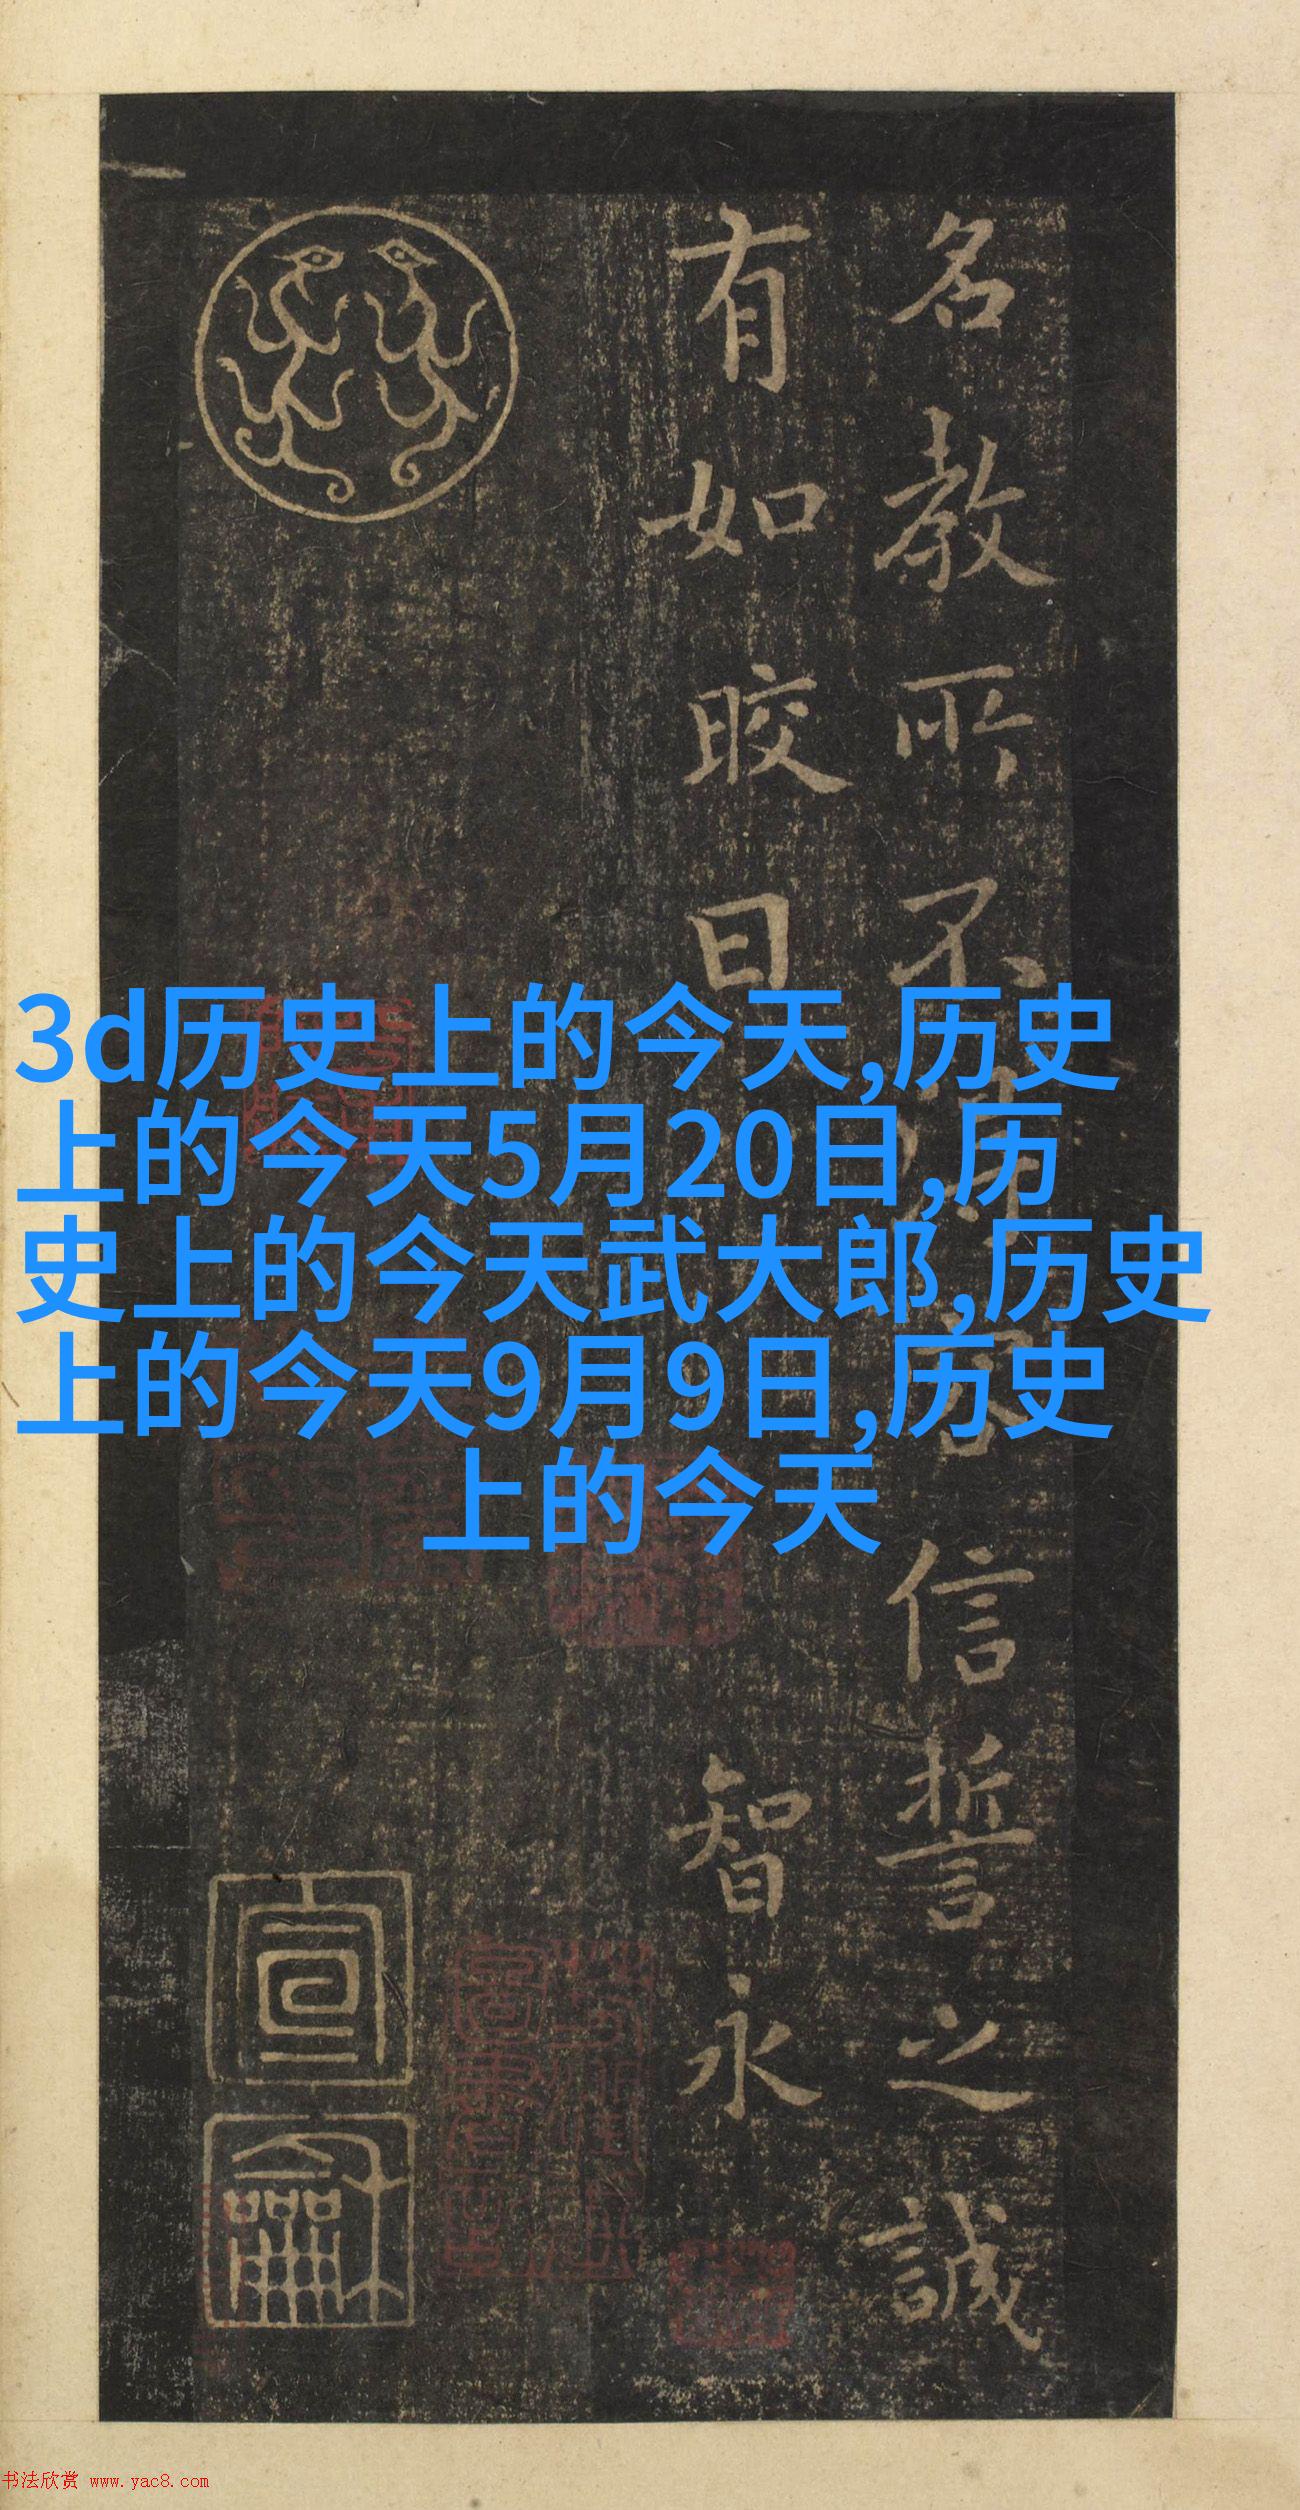 名教所不
信誓之誠
有如晈日
智永
3d历史上的今天,历史
上的今天5月20日,历
史上的今天武大郎,历史
上的今天9月9日,历史
上的今天
书法欣赏 www.yac8.com